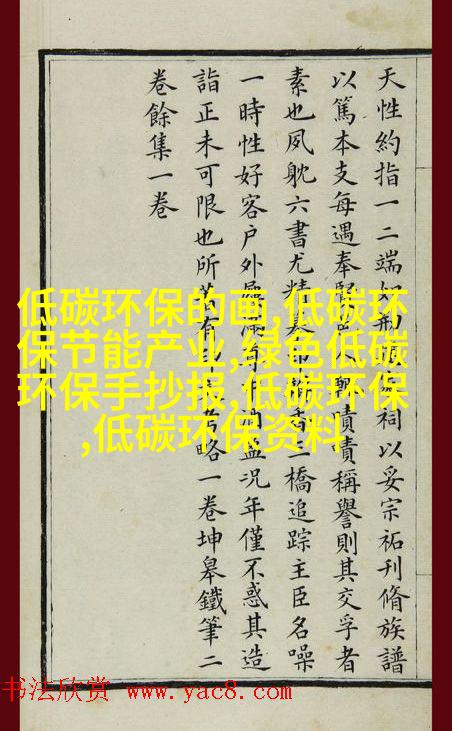 天性約指一二端如祠以妥宗祏刊脩族譜
以篤本支每遇奉賢嘖嘖稱譽則其交孚者
素也夙躭六書尤精三橋追踪主臣名噪
一時性好客戶外況年僅不惑其造
詣正未可限也所略一卷坤皋鐵筆二
卷餘集一卷
低碳环保的画,低碳环
保节能产业,绿色低碳
环保手抄报,低碳环保
,低碳环保资料
书法欣赏 www.yac8.com